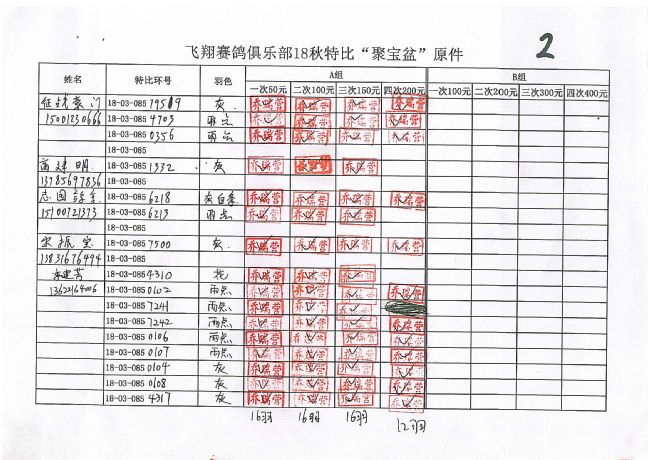 飞翔赛鸽俱乐部18秋特比“聚宝盆”原件 2
姓名 特比环号 羽色 A组 B组
一次50元 二次100元 三次150元 四次200元 一次100元 二次200元 三次300元 四次400元
18-03-085 19519 灰 乔瑞营 乔瑞营 乔瑞营 乔瑞营
15001230666 18-03-085 4703 雨点 乔瑞营 乔瑞营 乔瑞营 乔瑞营
18-03-085 0356 雨点 乔瑞营 乔瑞营 乔瑞营 乔瑞营
18-03-085
高建明 18-03-085 1332 灰 乔瑞营 乔瑞营 乔瑞营
13785697836 18-03-085
志国 18-03-085 6218 灰白条 乔瑞营 乔瑞营 乔瑞营 乔瑞营
15100721373 18-03-085 6213 雨点 乔瑞营 乔瑞营 乔瑞营
18-03-085
宋振宝 18-03-085 7500 灰 乔瑞营 乔瑞营 乔瑞营 乔瑞营
13831676494 18-03-085
18-03-085 4310 花 乔瑞营 乔瑞营 乔瑞营
13622164006 18-03-085 0102 雨点 乔瑞营 乔瑞营 乔瑞营 乔瑞营
18-03-085 7241 雨点 乔瑞营 乔瑞营 乔瑞营
18-03-085 7242 雨点 乔瑞营 乔瑞营 乔瑞营 乔瑞营
18-03-085 0106 雨点 乔瑞营 乔瑞营 乔瑞营 乔瑞营
18-03-085 0107 雨点 乔瑞营 乔瑞营 乔瑞营 乔瑞营
18-03-085 0104 灰 乔瑞营 乔瑞营 乔瑞营 乔瑞营
18-03-085 0108 灰 乔瑞营 乔瑞营 乔瑞营 乔瑞营
18-03-085 4317 灰 乔瑞营 乔瑞营 乔瑞营 乔瑞营
16羽 16羽 16羽 12羽